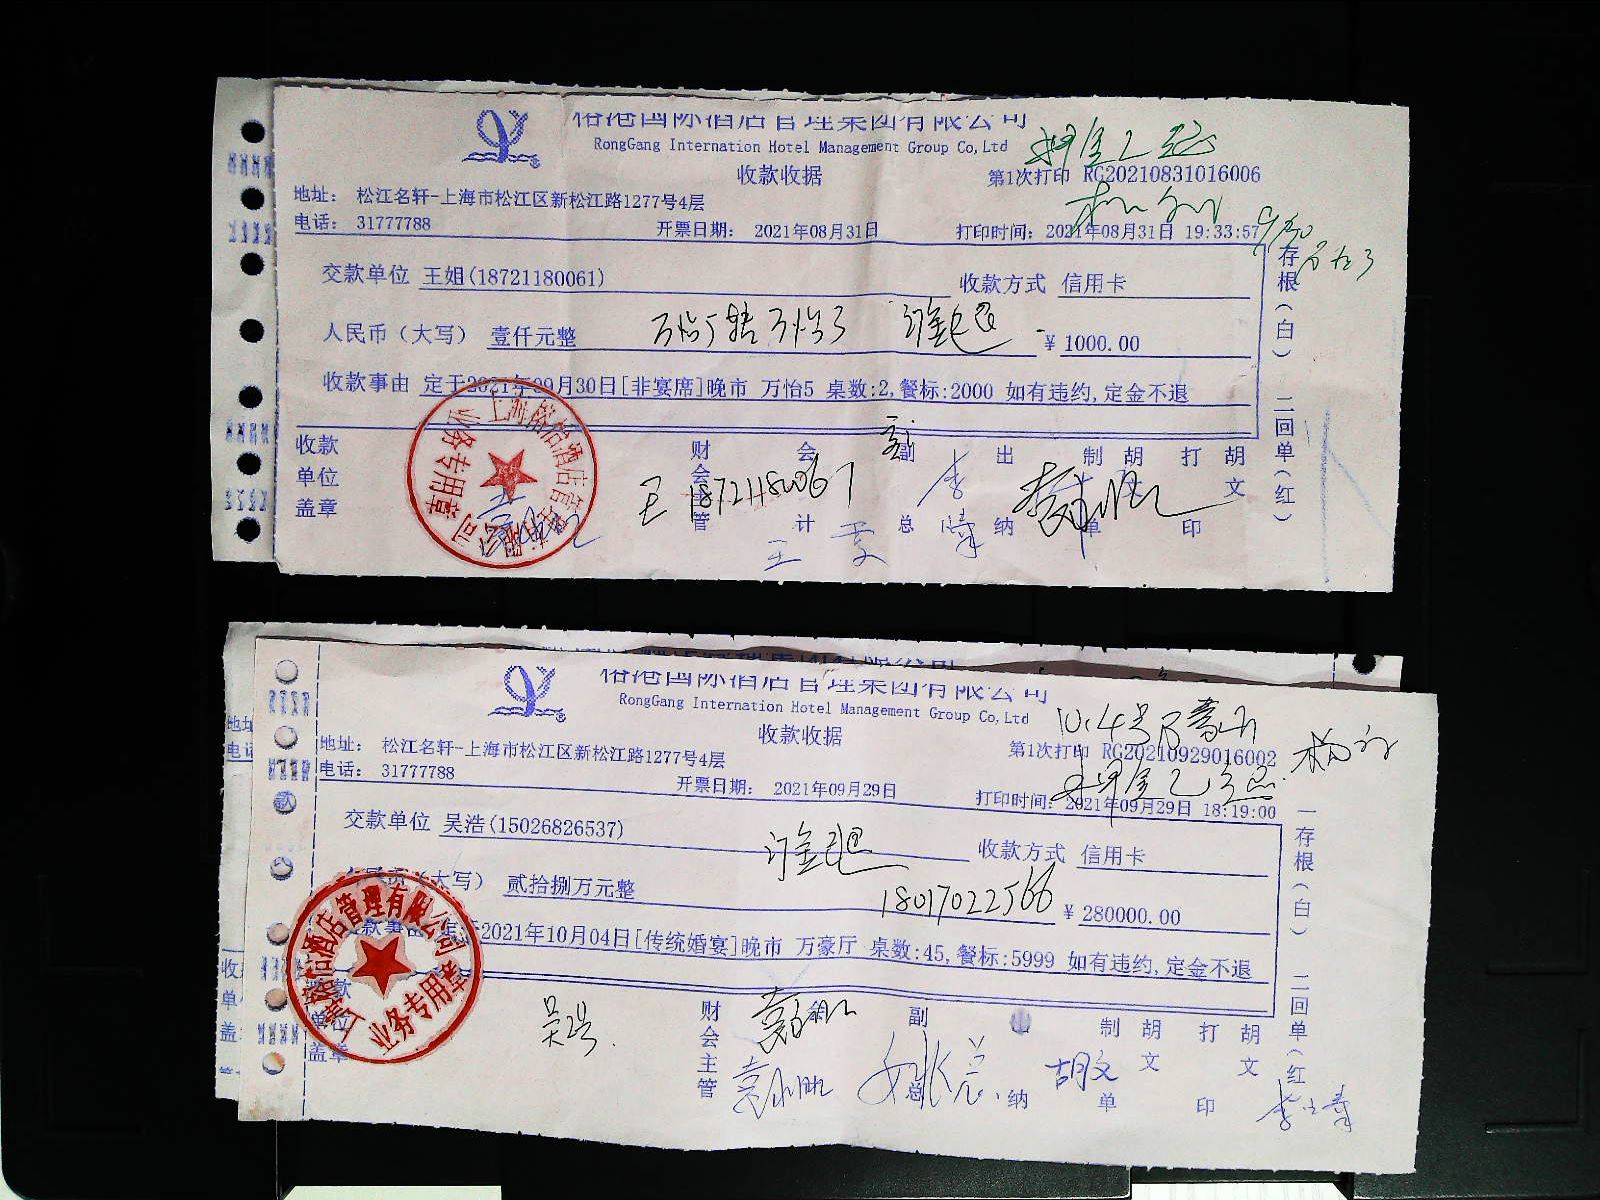 裕港国际酒店管理集团有限公司
RongGang International Hotel Management Group Co,Ltd
收款收据
第1次打印 RG20210831016006
地址： 松江名轩-上海市松江区新松江路1277号4层
电话： 31777788
开票日期： 2021年08月31日
打印时间：2021年08月31日 19:33:57
9/30
交款单位 王姐(18721180061)
收款方式 信用卡
人民币（大写） 壹仟元整
订金已退
¥ 1000.00
收款事由 定于2021年09月30日[非宴席]晚市 万怡5 桌数:2,餐标:2000 如有违约,定金不退
存根（白） 二回单（红）
收款单位盖章
财会主管
会计
副总
出纳
制单 胡
打印 胡文
王 18721180061
业务专用章
裕港国际酒店管理集团有限公司
RongGang International Hotel Management Group Co,Ltd
收款收据
第1次打印 RG20210929016002
地址： 松江名轩-上海市松江区新松江路1277号4层
电话： 31777788
开票日期： 2021年09月29日
打印时间：2021年09月29日 18:19:00
交款单位 吴浩(15026826537)
订金已退
收款方式 信用卡
（大写） 贰拾捌万元整
18017022566
¥ 280000.00
款事由 定于2021年10月04日[传统婚宴]晚市 万豪厅 桌数:45,餐标:5999 如有违约,定金不退
一存根（白） 二回单（红
款单位盖章
吴浩
财会主管
副总
纳
制单 胡文
打印 胡文
胡文
业务专用章